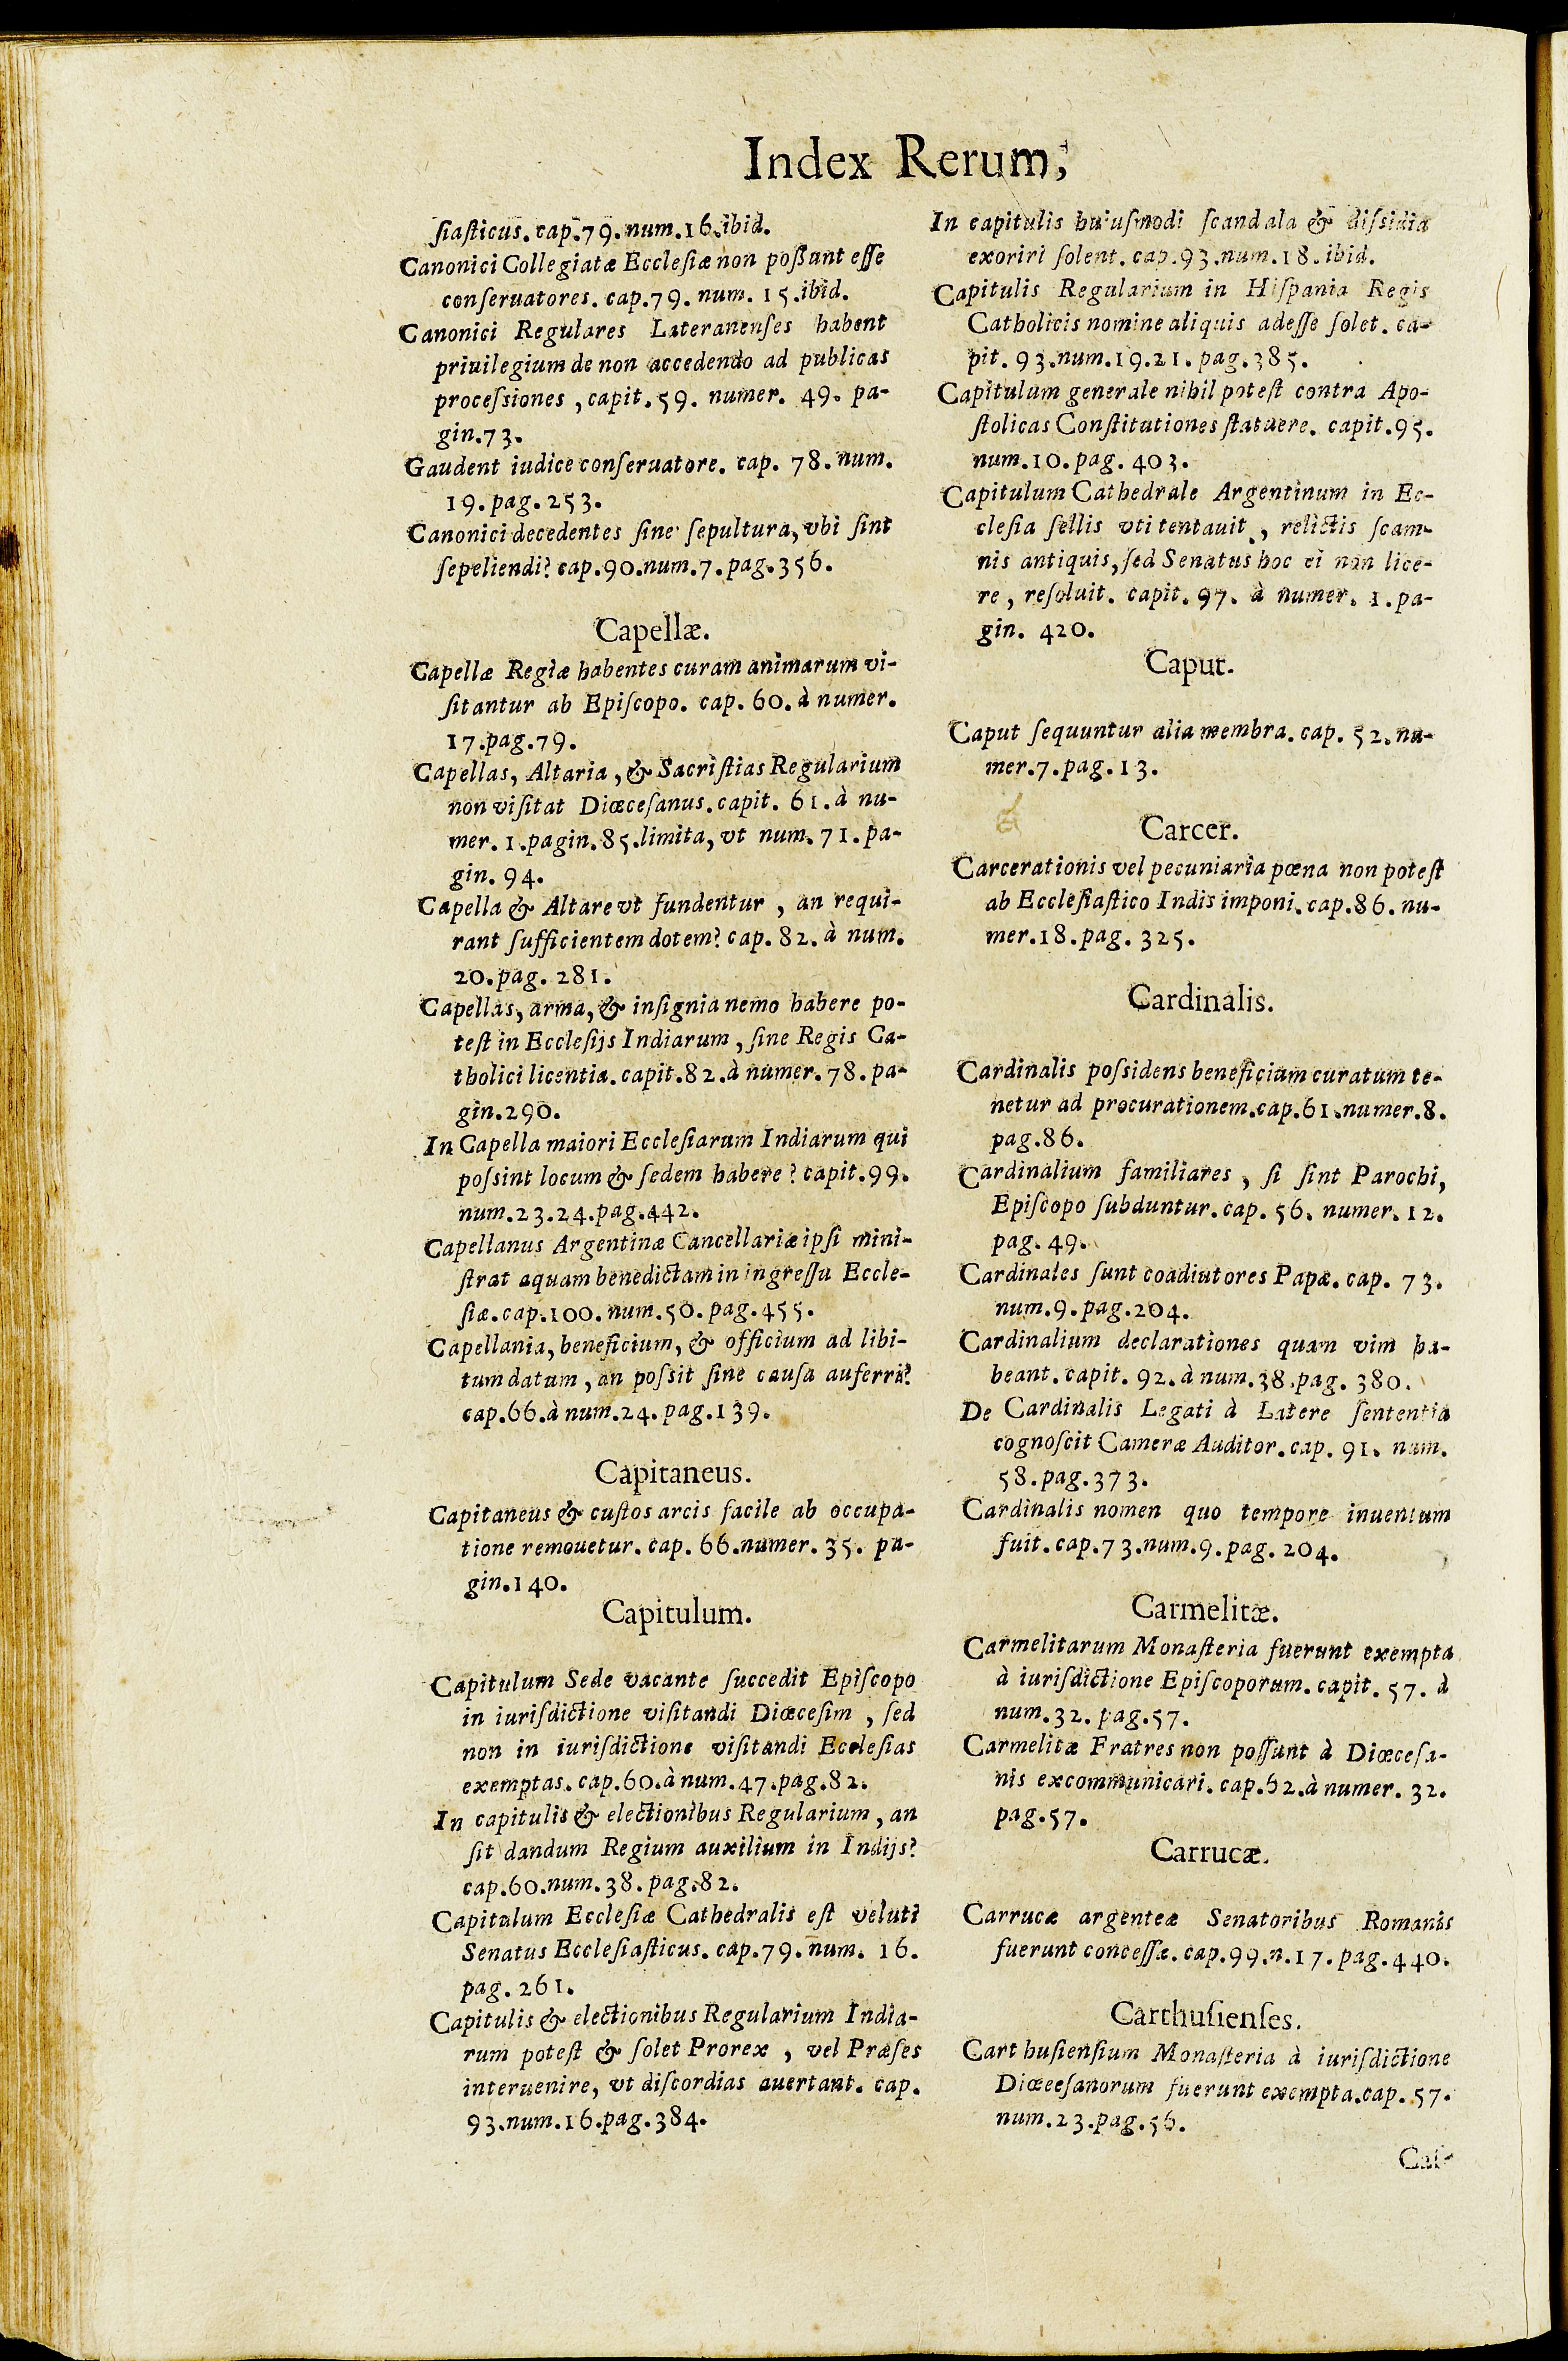 Index Rerum,
ſiaſticus. cap.79. num.16. ibid.
Canonici Collegiatæ Eccleſiæ non poſſunt eſſe
conſeruatores. cap.79. num. 15. ibid.
Canonici Regulares Lateranenſes habent
priuilegium de non accedendo ad publicas
proceſsiones, capit. 59. numer. 49. pa-
gin.73.
Gaudent iudice conſeruatore. cap. 78. num.
19. pag. 253.
Canonici decedentes ſine ſepultura, vbi ſint
ſepeliendi? cap.90.num.7. pag.356.
Capellæ.
Capellæ Regiæ habentes curam animarum vi-
ſitantur ab Epiſcopo. cap. 60. à numer.
17.pag.79.
Capellas, Altaria, & Sacriſtias Regularium
non viſitat Diœceſanus. capit. 61. à nu-
mer. 1.pagin.85.limita, vt num. 71. pa-
gin. 94.
Capella & Altare vt fundentur, an requi-
rant ſufficientem dotem? cap. 82. à num.
20.pag. 281.
Capellas, arma, & inſignia nemo habere po-
teſt in Eccleſijs Indiarum, ſine Regis Ca-
tholici licentia. capit.82.à numer.78.pa-
gin.290.
In Capella maiori Eccleſiarum Indiarum qui
poſsint locum & ſedem habere? capit.99.
num.23.24.pag.442.
Capellanus Argentinæ Cancellariæ ipſi mini-
ſtrat aquam benedictam in ingreſſu Eccle-
ſiæ. cap.100. num.50. pag.455.
Capellania, beneficium, & officium ad libi-
tum datum, an poſsit ſine cauſa auferri?
cap.66.à num.24. pag.139.
Capitaneus.
Capitaneus & cuſtos arcis facile ab occupa-
tione remouetur. cap. 66.numer. 35. pa-
gin.140.
Capitulum.
Capitulum Sede vacante ſuccedit Epiſcopo
in iuriſdictione viſitandi Diœceſim, ſed
non in iuriſdictione viſitandi Eccleſias
exemptas. cap.60.à num.47.pag.82.
In capitulis & electionibus Regularium, an
ſit dandum Regium auxilium in Indijs?
cap.60.num.38.pag.82.
Capitulum Eccleſiæ Cathedralis eſt veluti
Senatus Eccleſiaſticus. cap.79. num. 16.
pag. 261.
Capitulis & electionibus Regularium India-
rum poteſt & ſolet Prorex, vel Præſes
interuenire, vt diſcordias auertant. cap.
93.num.16.pag.384.
In capitulis huiuſmodi ſcandala & diſsidia
exoriri ſolent. cap.93.num.18. ibid.
Capitulis Regularium in Hiſpania Regis
Catholicis nomine aliquis adeſſe ſolet. ca-
pit. 93.num.19.21. pag.385.
Capitulum generale nihil poteſt contra Apo-
ſtolicas Conſtitutiones ſtatuere. capit.95.
num.10.pag. 403.
Capitulum Cathedrale Argentinum in Ec-
cleſia ſellis vti tentauit, relictis ſcam-
nis antiquis, ſed Senatus hoc ei non lice-
re, reſoluit. capit. 97. à numer. 1. pa-
gin. 420.
Caput.
Caput ſequuntur alia membra. cap. 52. nu-
mer.7. pag.13.
Carcer.
Carcerationis vel pecuniaria pœna non poteſt
ab Eccleſiaſtico Indis imponi. cap.86. nu-
mer.18.pag. 325.
Cardinalis.
Cardinalis poſsidens beneficium curatum te-
netur ad procurationem.cap.61.numer.8.
pag.86.
Cardinalium familiares, ſi ſint Parochi,
Epiſcopo ſubduntur. cap. 56. numer. 12.
pag. 49.
Cardinales ſunt coadiutores Papæ. cap. 73.
num.9.pag.204.
Cardinalium declarationes quam vim ha-
beant. capit. 92. à num.38.pag. 380.
De Cardinalis Legati à Latere ſententia
cognoſcit Cameræ Auditor. cap. 91. num.
58.pag.373.
Cardinalis nomen quo tempore inuentum
fuit. cap.73.num.9.pag. 204.
Carmelitæ.
Carmelitarum Monaſteria fuerunt exempta
à iuriſdictione Epiſcoporum. capit. 57. à
num.32. pag.57.
Carmelitæ Fratres non poſſunt à Diœceſa-
nis excommunicari. cap.62.à numer. 32.
pag.57.
Carrucæ.
Carrucæ argenteæ Senatoribus Romanis
fuerunt conceſſæ. cap.99.n.17. pag.440.
Carthuſienſes.
Carthuſienſium Monaſteria à iuriſdictione
Diœceſanorum fuerunt exempta.cap. 57.
num.23.pag.56.